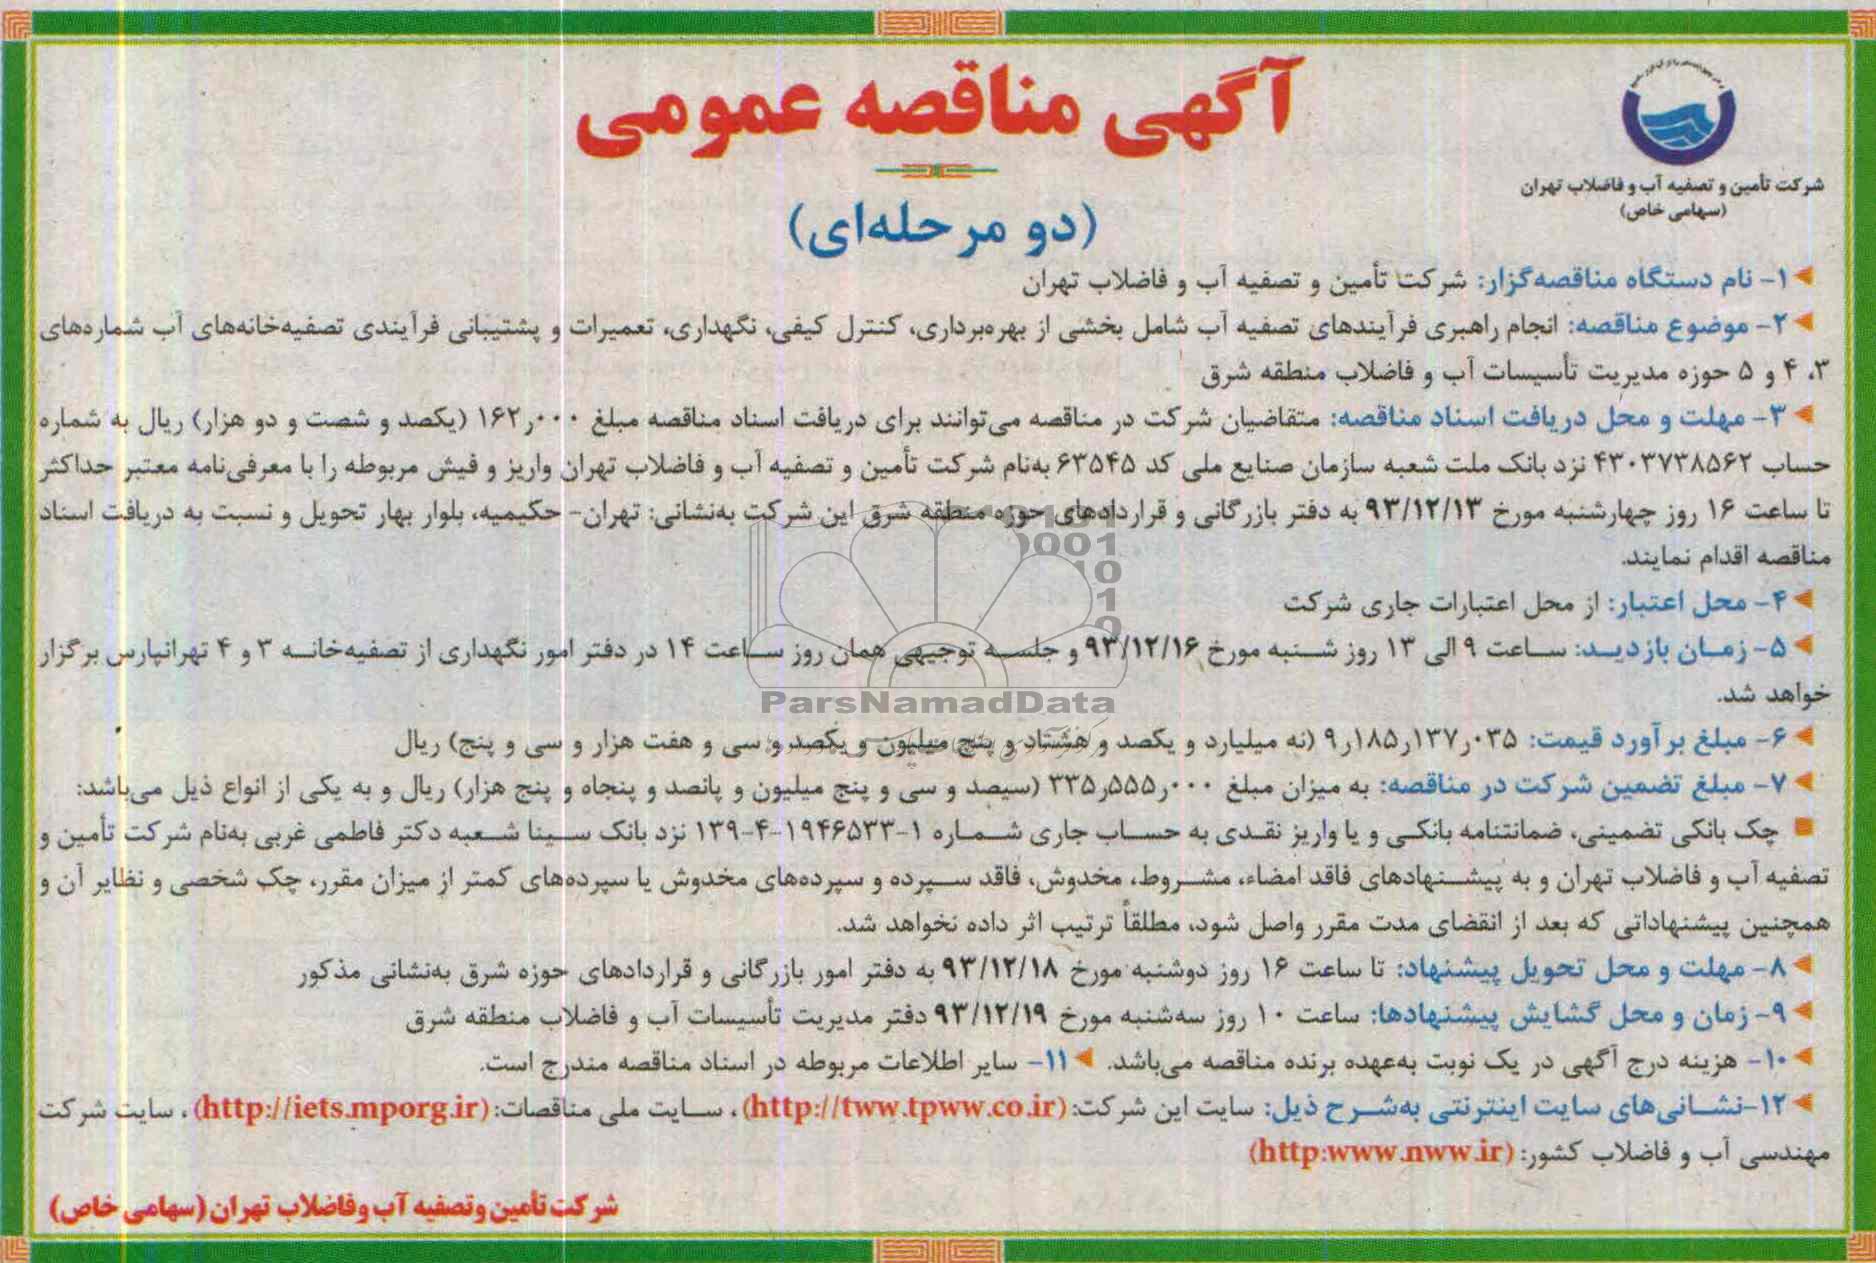 آگهی مناقصه عمومی
شرکت تأمین و تصفیه آب و فاضلاب تهران
(سهامی خاص)
(دو مرحله‌ای)
۱- نام دستگاه مناقصه‌گزار: شرکت تأمین و تصفیه آب و فاضلاب تهران
۲- موضوع مناقصه: انجام راهبری فرآیندهای تصفیه آب شامل بخشی از بهره‌برداری، کنترل کیفی، نگهداری، تعمیرات و پشتیبانی فرآیندی تصفیه‌خانه‌های آب شماره‌های
۳، ۴ و ۵ حوزه مدیریت تأسیسات آب و فاضلاب منطقه شرق
۳- مهلت و محل دریافت اسناد مناقصه: متقاضیان شرکت در مناقصه می‌توانند برای دریافت اسناد مناقصه مبلغ ۱۶۲٫۰۰۰ (یکصد و شصت و دو هزار) ریال به شماره
حساب ۴۳۰۳۷۳۸۵۶۲ نزد بانک ملت شعبه سازمان صنایع ملی کد ۶۳۵۴۵ به‌نام شرکت تأمین و تصفیه آب و فاضلاب تهران واریز و فیش مربوطه را با معرفی‌نامه معتبر حداکثر
تا ساعت ۱۶ روز چهارشنبه مورخ ۹۳/۱۲/۱۳ به دفتر بازرگانی و قراردادهای حوزه منطقه شرق این شرکت به‌نشانی: تهران- حکیمیه، بلوار بهار تحویل و نسبت به دریافت اسناد
مناقصه اقدام نمایند.
۴- محل اعتبار: از محل اعتبارات جاری شرکت
۵- زمان بازدید: ساعت ۹ الی ۱۳ روز شنبه مورخ ۹۳/۱۲/۱۶ و جلسه توجیهی همان روز ساعت ۱۴ در دفتر امور نگهداری از تصفیه‌خانه ۳ و ۴ تهرانپارس برگزار
خواهد شد.
ParsNamadData
۶- مبلغ برآورد قیمت: ۹٫۱۸۵٫۱۳۷٫۰۳۵ (نه میلیارد و یکصد و هشتاد و پنج میلیون و یکصد و سی و هفت هزار و سی و پنج) ریال
۷- مبلغ تضمین شرکت در مناقصه: به میزان مبلغ ۳۳۵٫۵۵۵٫۰۰۰ (سیصد و سی و پنج میلیون و پانصد و پنجاه و پنج هزار) ریال و به یکی از انواع ذیل می‌باشد:
چک بانکی تضمینی، ضمانتنامه بانکی و یا واریز نقدی به حساب جاری شماره ۱-۱۹۴۶۵۳۳-۴-۱۳۹ نزد بانک سینا شعبه دکتر فاطمی غربی به‌نام شرکت تأمین و
تصفیه آب و فاضلاب تهران و به پیشنهادهای فاقد امضاء، مشروط، مخدوش، فاقد سپرده و سپرده‌های مخدوش یا سپرده‌های کمتر از میزان مقرر، چک شخصی و نظایر آن و
همچنین پیشنهاداتی که بعد از انقضای مدت مقرر واصل شود، مطلقاً ترتیب اثر داده نخواهد شد.
۸- مهلت و محل تحویل پیشنهاد: تا ساعت ۱۶ روز دوشنبه مورخ ۹۳/۱۲/۱۸ به دفتر امور بازرگانی و قراردادهای حوزه شرق به‌نشانی مذکور
۹- زمان و محل گشایش پیشنهادها: ساعت ۱۰ روز سه‌شنبه مورخ ۹۳/۱۲/۱۹ دفتر مدیریت تأسیسات آب و فاضلاب منطقه شرق
۱۰- هزینه درج آگهی در یک نوبت به‌عهده برنده مناقصه می‌باشد. ۱۱- سایر اطلاعات مربوطه در اسناد مناقصه مندرج است.
۱۲-نشانی‌های سایت اینترنتی به‌شرح ذیل: سایت این شرکت: (http://tww.tpww.co.ir)، سایت ملی مناقصات: (http://iets.mporg.ir)، سایت شرکت
مهندسی آب و فاضلاب کشور: (http:www.nww.ir)
شرکت تأمین و تصفیه آب و فاضلاب تهران (سهامی خاص)